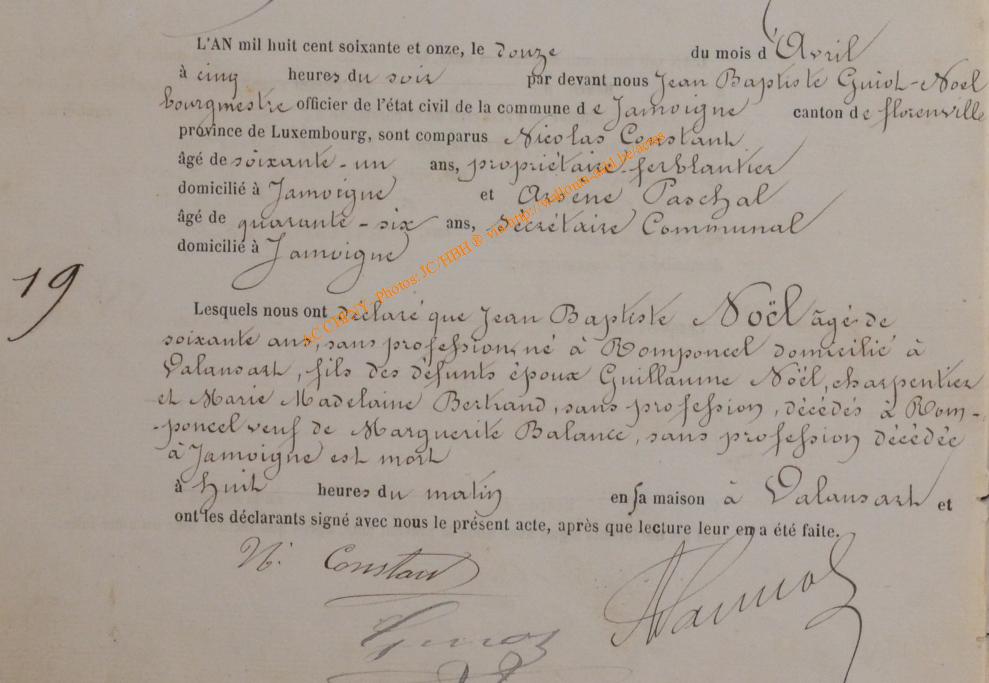 L'AN mil huit cent soixante et onze, le douze du mois d'Avril
à cinq heures du soir par devant nous Jean Baptiste Guiot-Noël
bourgmestre officier de l'état civil de la commune de Jamoigne canton de florenville
province de Luxembourg, sont comparus Nicolas Constant
âgé de soixante-un ans, propriétaire-ferblantier
domicilié à Jamoigne et Arsène Paschal
âgé de quarante-six ans, Secrétaire Communal
domicilié à Jamoigne
AC CHINY - Photos: JC/HBH ® via http://wallonia-asbl.be/actes
19
Lesquels nous ont déclaré que Jean Baptiste Noël âgé de
soixante ans, sans profession, né à Romponcel domicilié à
Valansart, fils des défunts époux Guillaume Noël, charpentier
et Marie Madelaine Bertrand, sans profession, décédés à Rom-
-poncel veuf de Marguerite Balance, sans profession décédée
à Jamoigne est mort
à huit heures du matin en sa maison à Valansart et
ont les déclarants signé avec nous le présent acte, après que lecture leur en a été faite.
N. Constant